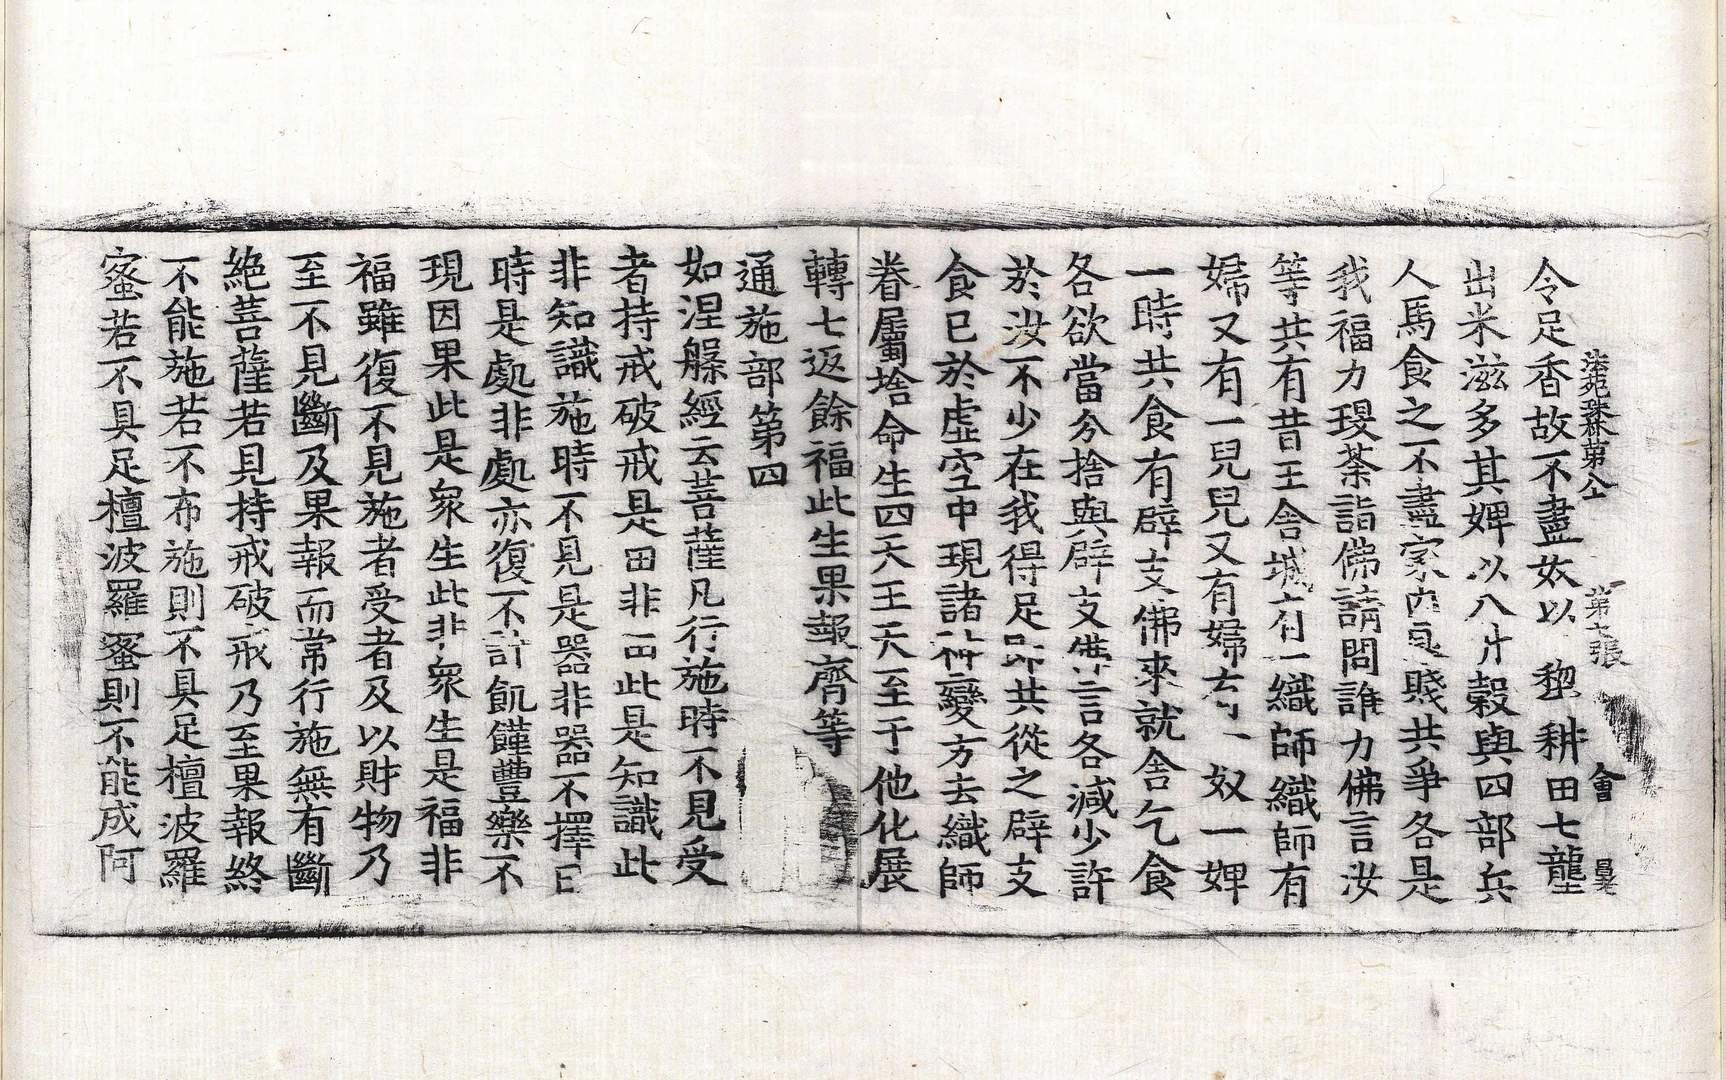 法苑珠林第八十 第七張 會
令足香故不盡奴以犂耕田七壠
出米滋多其婢以八斗穀與四部兵
人馬食之不盡家內良賤共爭各是
我福力珱荼詣佛請問誰力佛言汝
等共有昔王舍城有一織師織師有
婦又有一兒兒又有婦有一奴一婢
一時共食有辟支佛來就舍乞食
各欲當分捨與辟支佛言各減少許
於汝不少在我得足即共從之辟支
食已於虛空中現諸神變方去織師
眷屬捨命生四天王天至于他化展
轉七返餘福此生果報齊等
通施部第四
如涅槃經云菩薩凡行施時不見受
者持戒破戒是田非田此是知識此
非知識施時不見是器非器不擇日
時是處非處亦復不計飢饉豐樂不
現因果此是衆生此非衆生是福非
福雖復不見施者受者及以財物乃
至不見斷及果報而常行施無有斷
絶菩薩若見持戒破戒乃至果報終
不能施若不布施則不具足檀波羅
蜜若不具足檀波羅蜜則不能成阿